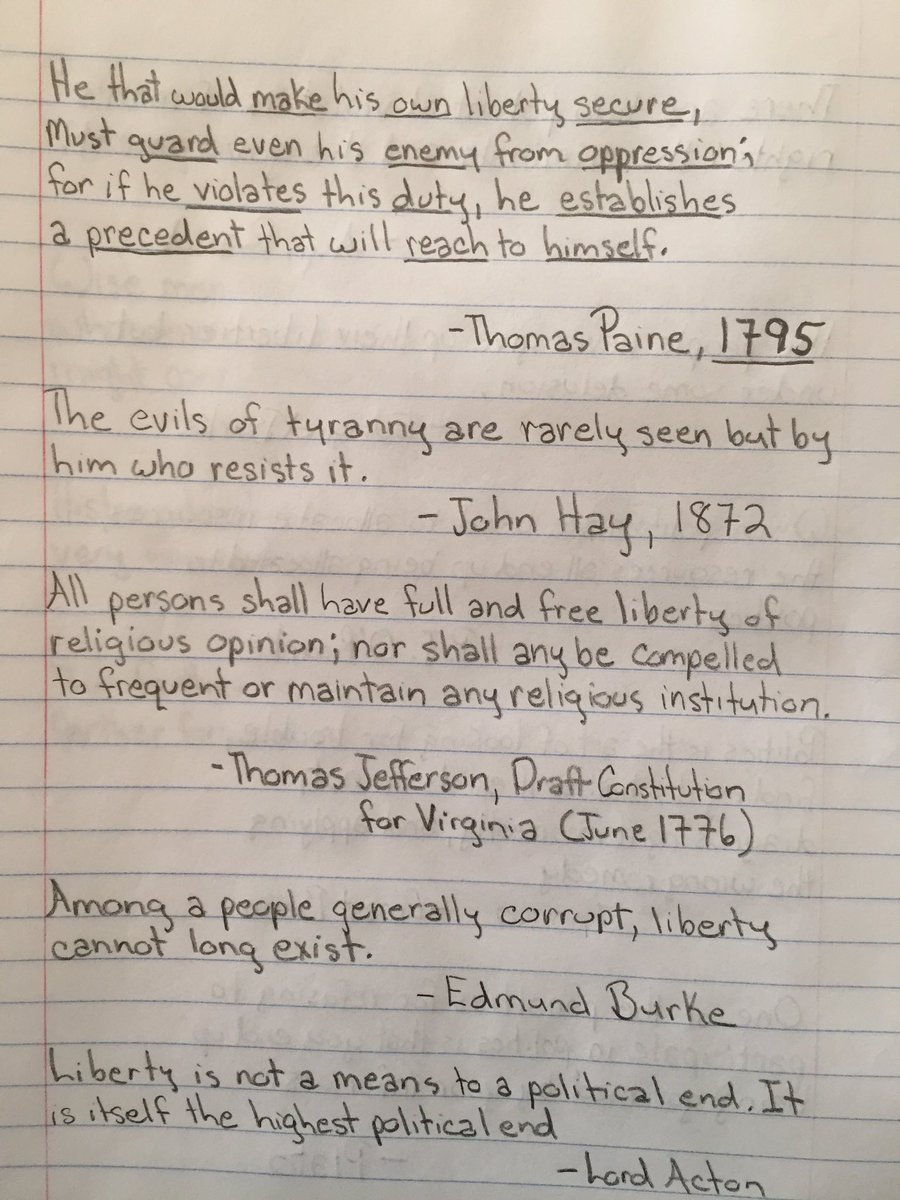 He that would make his own liberty secure,
Must guard even his enemy from oppression;
for if he violates this duty, he establishes
a precedent that will reach to himself.
-Thomas Paine, 1795
The evils of tyranny are rarely seen but by
him who resists it.
- John Hay, 1872
All persons shall have full and free liberty of
religious opinion; nor shall any be compelled
to frequent or maintain any religious institution.
-Thomas Jefferson, Draft Constitution
for Virginia (June 1776)
Among a people generally corrupt, liberty
cannot long exist.
- Edmund Burke
Liberty is not a means to a political end. It
is itself the highest political end
-Lord Acton